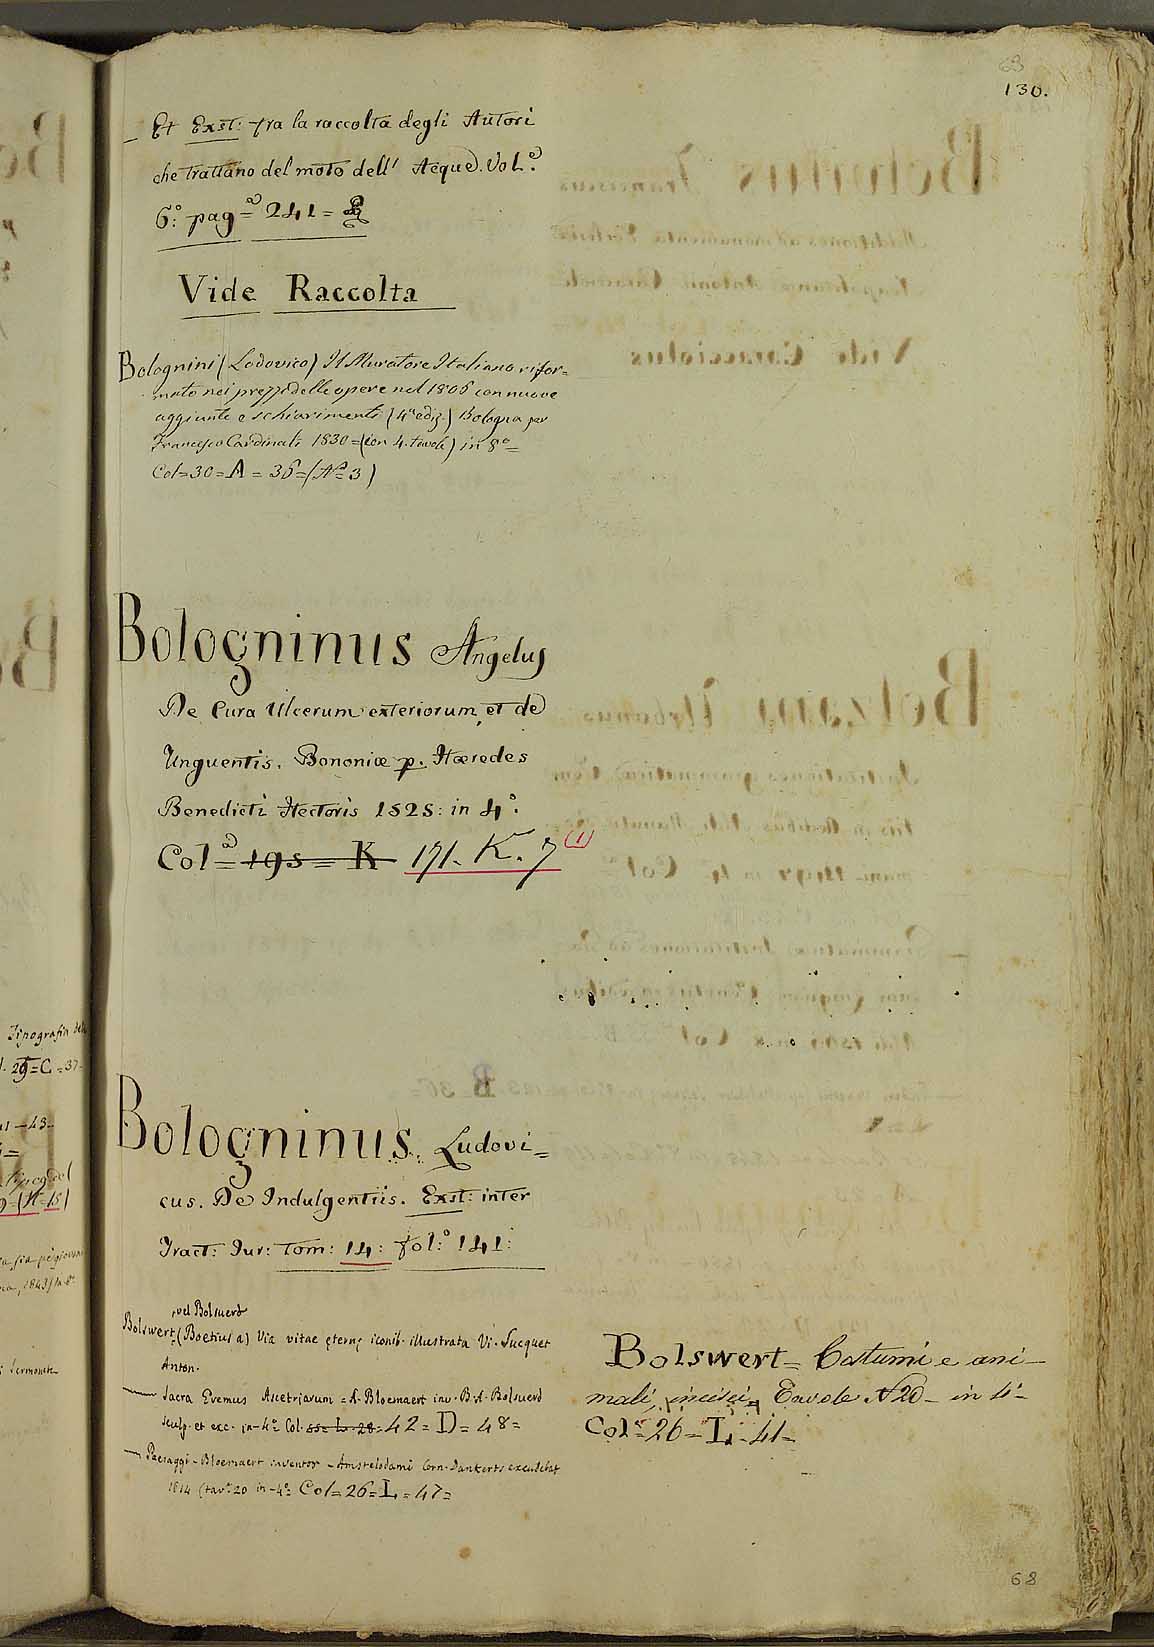 63
130.
_ Et Exst: fra la raccolta degli Autori
che trattano del moto dell' Acque. Vol.e
6.° pag.a = 241 =
Vide Raccolta
Bolognini (Lodovico) Il Muratore Italiano rifor=
mato nei prezzi delle opere nel 1806 con nuove
aggiunte e schiarimenti (4a ediz.) Bologna per
Francesco Cardinali 1830 = (con 4. tavole) in 8°=
Col=30=A=36=(N°=3)
Bologninus Angelus
De Cura Ulcerum exteriorum, et de
Unguentis. Bononiæ p. Hæredes
Benedicti Hectoris 1525: in 4°.
Col.a = 195 = K 171. K. 7 (1)
Bologninus. Ludovi=
cus. De Indulgentiis. Exst: inter
Tract: Jur: tom: 14: fol:° 141:
vel Bolsuerd
Bolswert (Boetius a) Via vitae ęternę iconib. illustrata Vi. Sucquet
Anton.
— Sacra Eremus Ascetriarum = A. Bloemaert inv. B. A. Bolsuerd
sculp. et exc. in-4°= Col. 55= L. 28. 42 = D = 48 =
— Paesaggi - Bloemaert inventor - Amstelodami Corn. Dankerts excudebat
1614 (tav: 20 in-4°= Col=26=L=47=
Bolswert = Costumi e ani-
mali, incisi, Tavole N 20 - in 4°-
Col.=26=L-41-
68
Tipografia
29=C=37-
43-
(N=15)
1843) in 8°
Sermonete